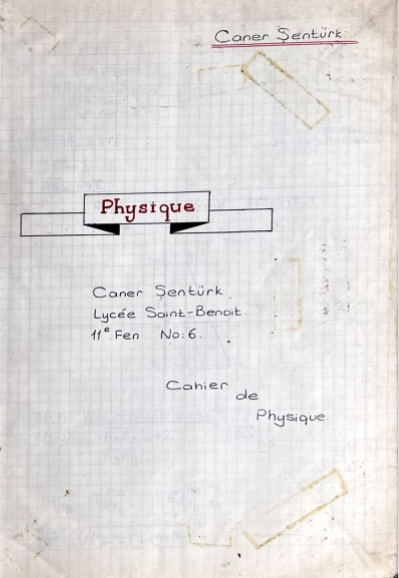 Caner Şentürk
Physique
Caner Şentürk
Lycée Saint-Benoit
11e Fen No: 6.
Cahier
de
Physique